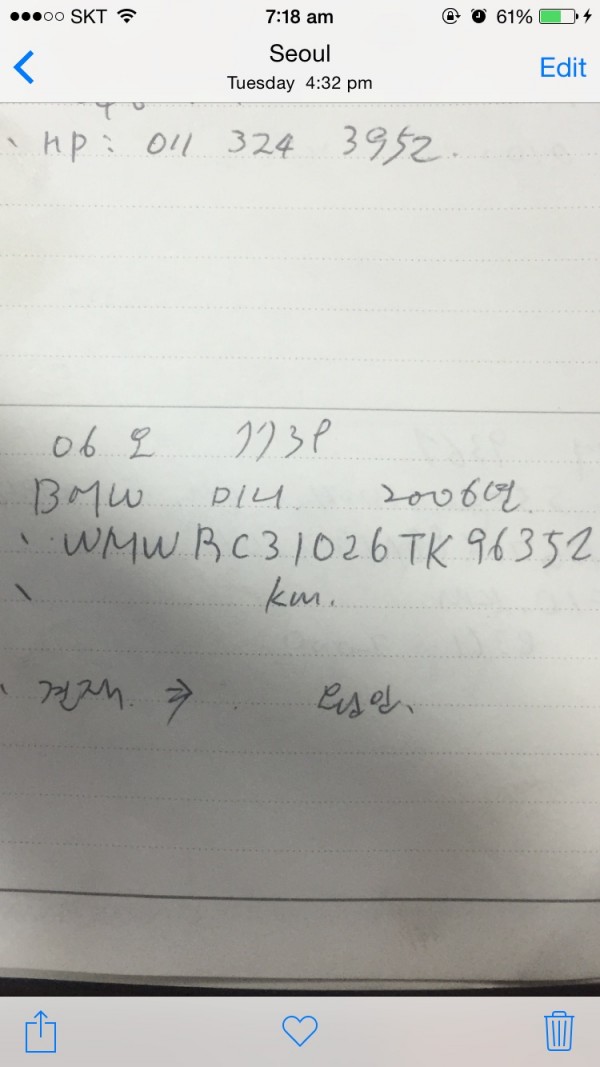 SKT 7:18 am 61%
Seoul
Tuesday 4:32 pm
Edit
HP: 011 324 3952.
06오 7738
BMW 미니. 2006년.
WMWRC31026TK96352
km.
견재. ⇒